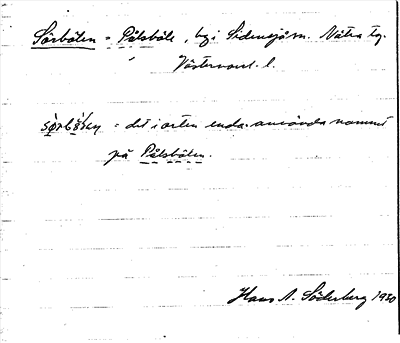 Sörbölen = Pålsböle, by i Sidensjö sn. Nätra tg.
Västernorrl. l.
sörbölen = det i orten enda använda namnet
på Pålsbölen.
Hans A. Söderberg 1930